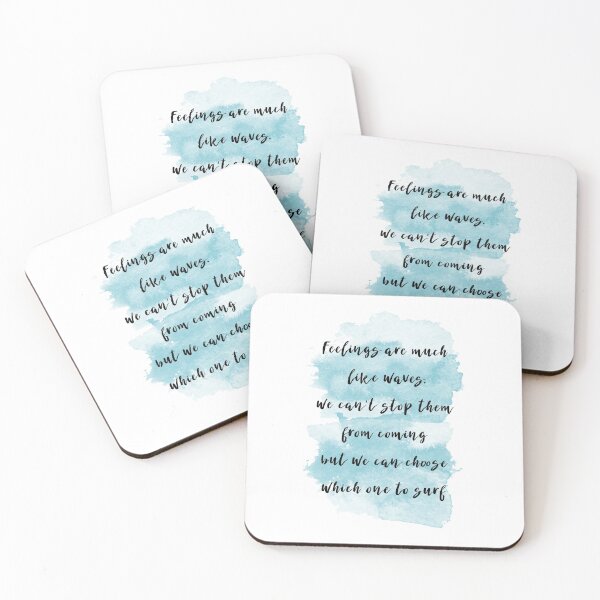 Feelings are much
like waves.
We can't stop them
Feelings are much
like waves.
We can't stop them
from coming
but we can choose
Feelings are much
like waves.
We can't stop them
from coming
but we can
which one to
Feelings are much
like waves.
We can't stop them
from coming
but we can choose
which one to surf